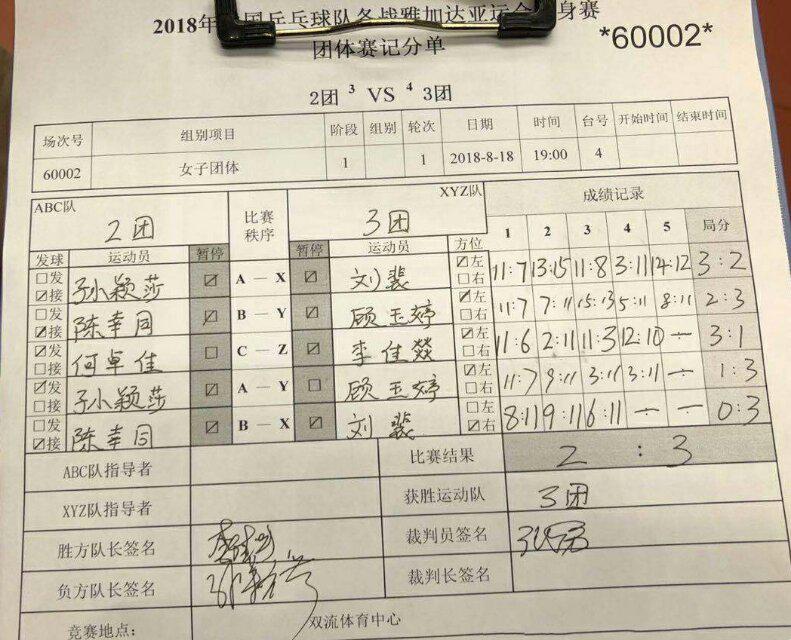 2018年 国乒乓球队备战雅加达亚运会 身赛
团体赛记分单
*60002*
2团 3 VS 4 3团
场次号 组别项目 阶段 组别 轮次 日期 时间 台号 开始时间 结束时间
60002 女子团体 1 1 2018-8-18 19:00 4
ABC队 2团 比赛秩序 XYZ队 3团 成绩记录
发球 运动员 暂停 暂停 运动员 方位 1 2 3 4 5 局分
□发 ☑接 孙颖莎 ☑ A — X ☑ 刘裴 ☑左 □右 11:7 13:15 11:8 3:11 14:12 3:2
□发 ☑接 陈幸同 ☑ B — Y ☑ 顾玉婷 ☑左 □右 11:7 7:11 15:13 5:11 8:11 2:3
☑发 □接 何卓佳 □ C — Z ☑ 李佳燚 ☑左 □右 11:6 2:11 11:3 12:10 — 3:1
☑发 □接 孙颖莎 ☑ A — Y □ 顾玉婷 ☑左 □右 11:7 9:11 3:11 3:11 — 1:3
□发 ☑接 陈幸同 ☑ B — X ☑ 刘裴 □左 ☑右 8:11 9:11 6:11 — — 0:3
ABC队指导者 比赛结果 2 : 3
XYZ队指导者 获胜运动队 3团
胜方队长签名 裁判员签名
负方队长签名 裁判长签名
竞赛地点: 双流体育中心